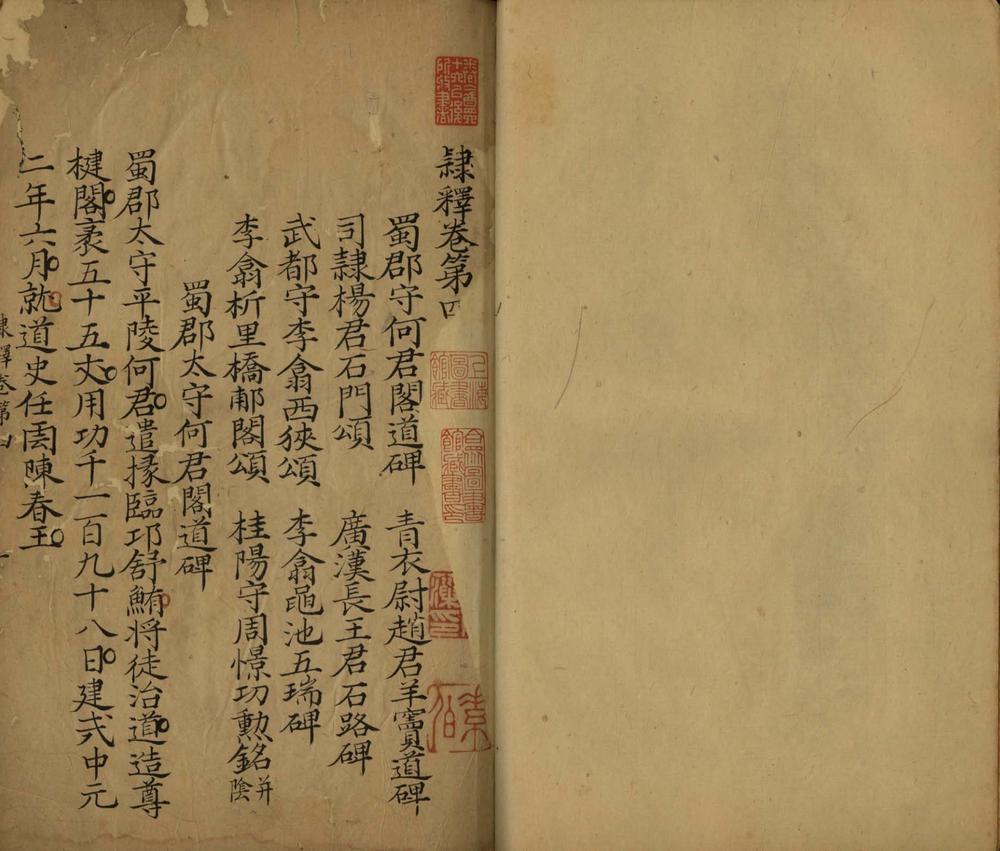 隸釋卷第四
蜀郡守何君閣道碑 青衣尉趙君羊竇道碑
司隸楊君石門頌 廣漢長王君石路碑
武都守李翕西狹頌 李翕黽池五瑞碑
李翕析里橋郙閣頌 桂陽守周憬功勲銘并陰
蜀郡太守何君閣道碑
蜀郡太守平陵何君遣掾臨邛舒鮪将徒治道造尊
楗閣袤五十五丈用功千一百九十八日建武中元
二年六月就道史任雲陳春主
隸釋卷第四
上海圖書館藏